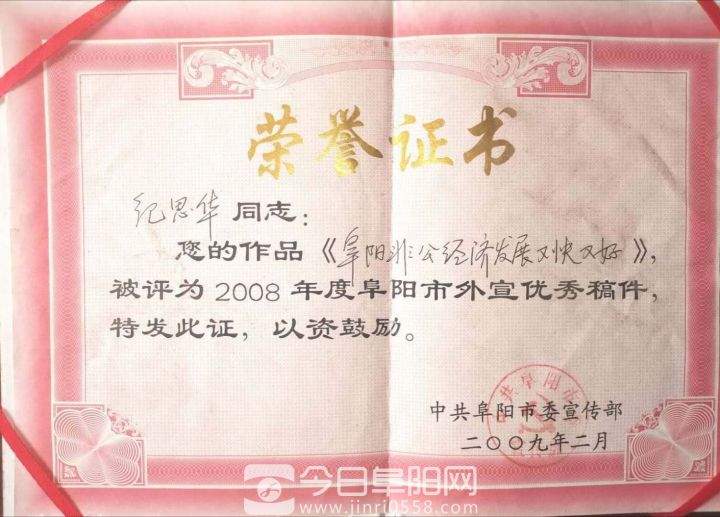 荣誉证书
纪思华 同志：
您的作品《阜阳非公经济发展又快又好》，
被评为 2008 年度阜阳市外宣优秀稿件，
特发此证，以资鼓励。
中共阜阳市委宣传部
二〇〇九年二月
中共阜阳市
今日阜阳网
www.jinri0558.com